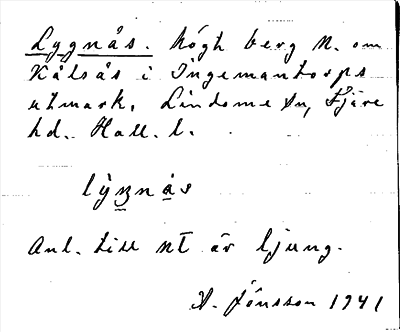 Lygnås. högt berg N. om
Kålsås i Ingemantorps
utmark, Lindome sn, Fjäre
hd. Hall. l.
lỳŋnås
Anl. till nt är ljung.
A. Jönsson 1941